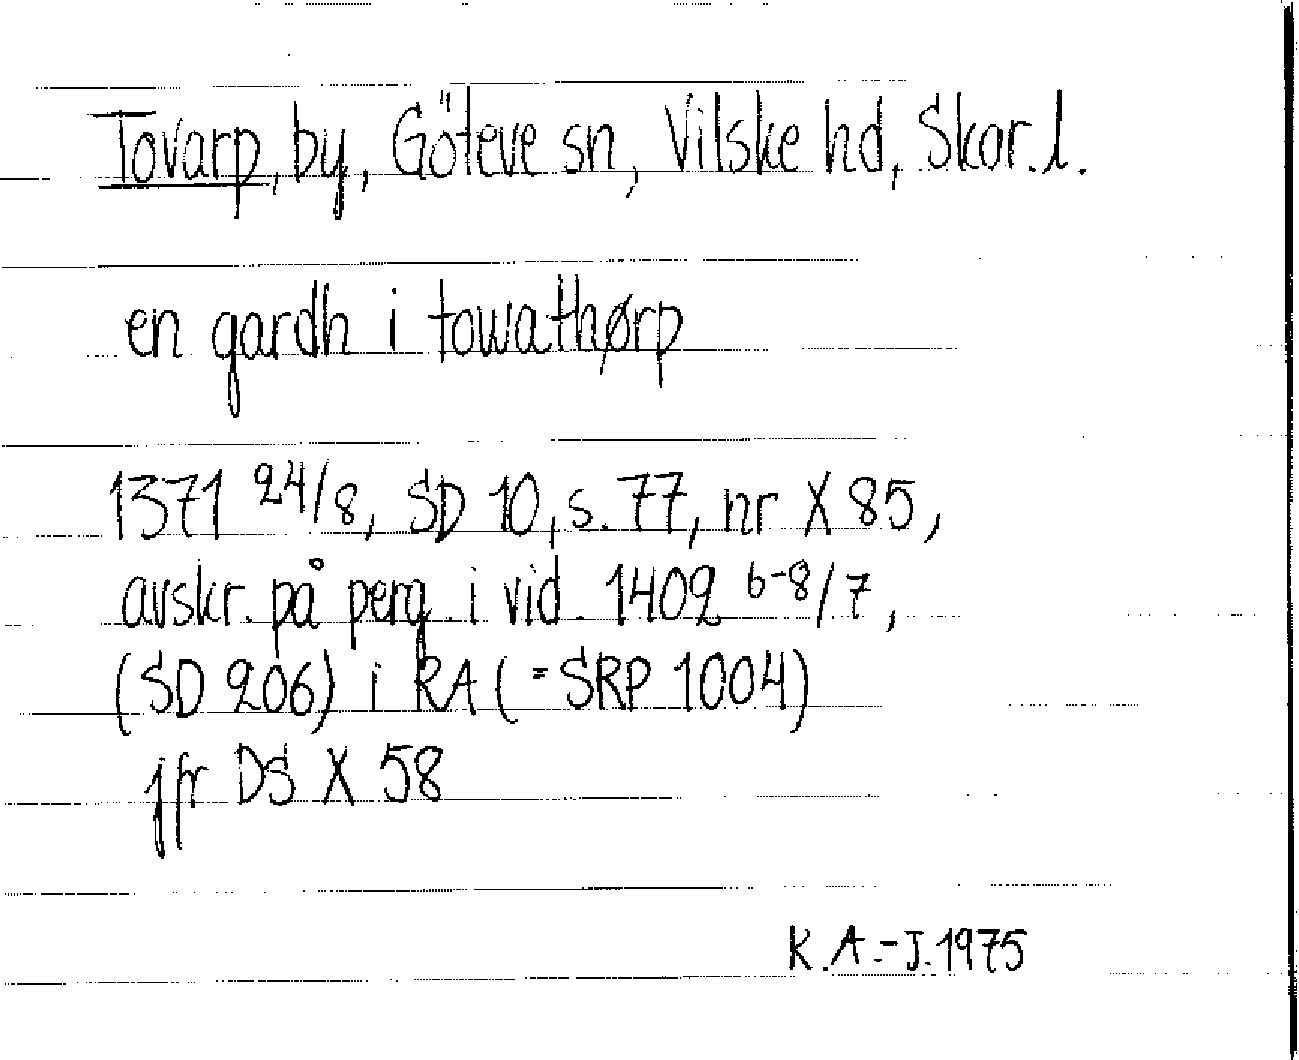 Tovarp, by, Göteve sn, Vilske hd, Skar. l.
en gardh i towathørp
1371 24/8, SD 10, s. 77, nr X 85,
avskr. på perg. i vid. 1402 6-8/7,
(SD 206) i RA (=SRP 1004)
jfr DS X 58
K.A.-J. 1975